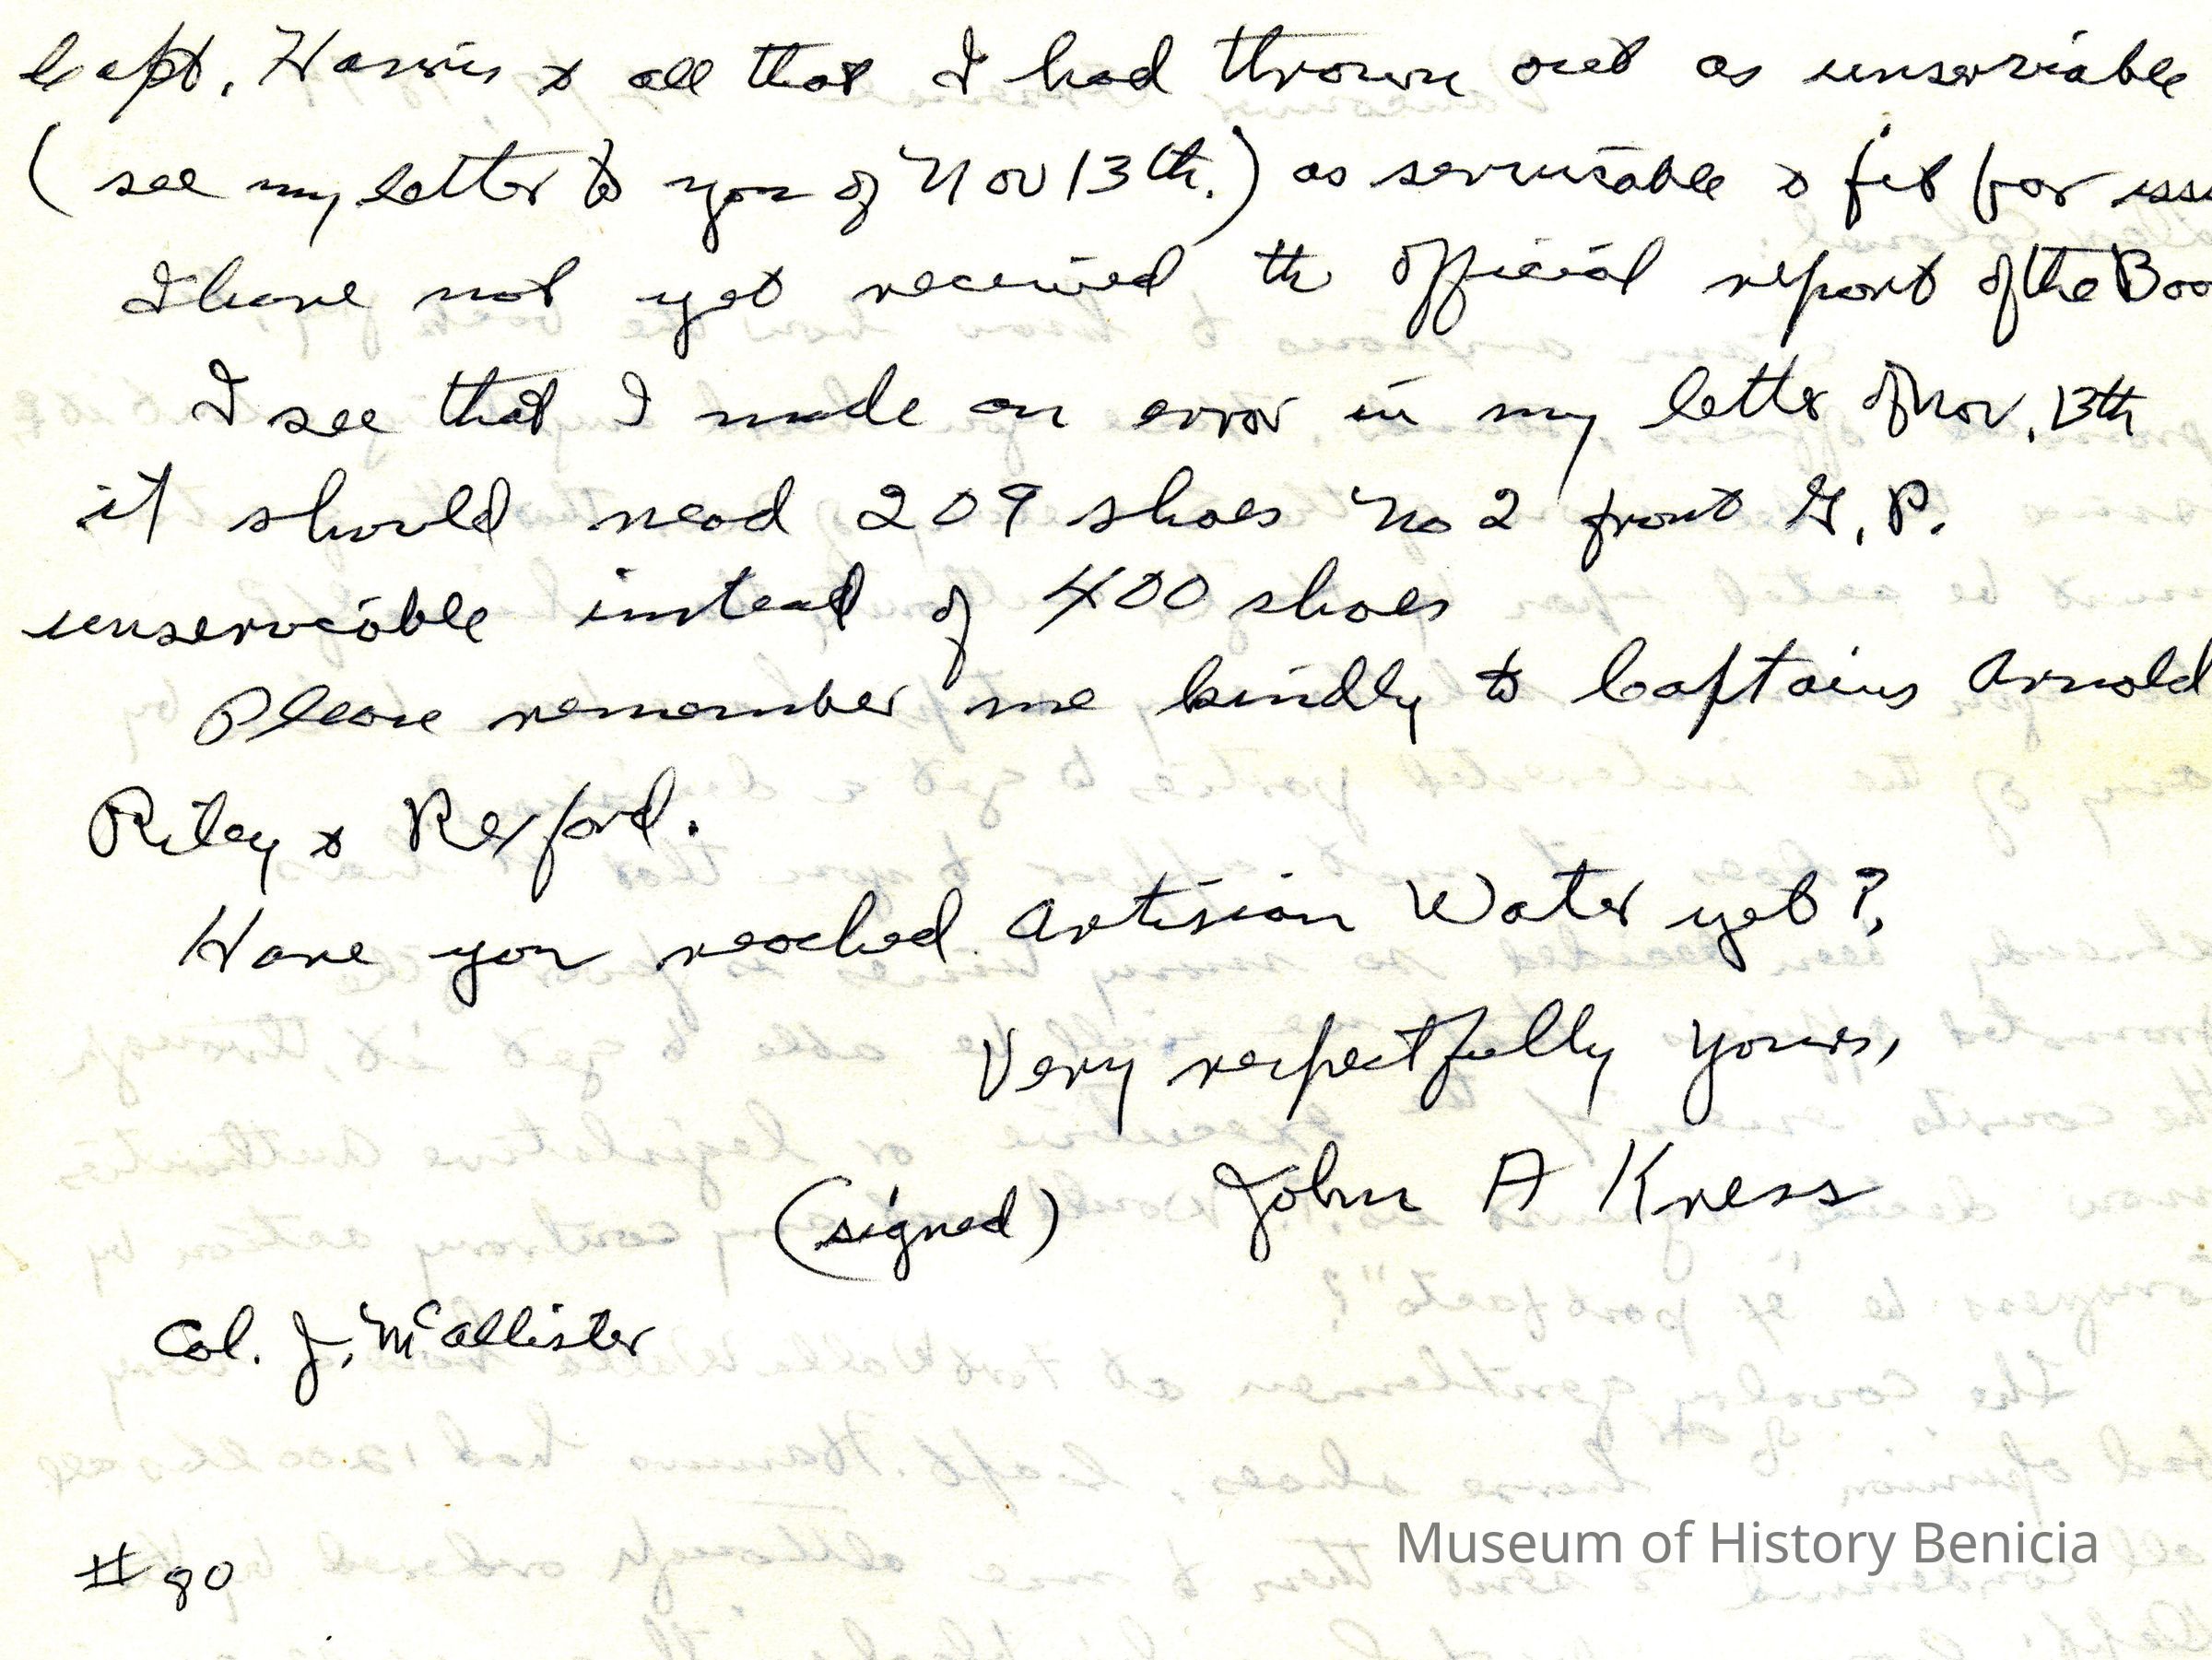 Capt. Harris & all that I had thrown out as unserviable
(see my letter to you of Nov 13th.) as serviceable & fit for issu
I have not yet received th official report of the Boa
I see that I made an error in my letter of Nov. 13th
it should read 209 shoes No 2 front G.P.
unserviceable instead of 400 shoes
Please remember me kindly to Captains Arnold
Riley & Rexford.
Have you reached Artisian Water yet?
Very respectfully Yours,
(signed) John A Kress
Col. J. McAllister
#80
Museum of History Benicia